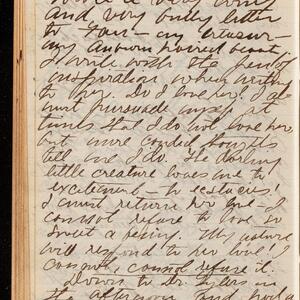 and very pretty letter
to Fan — my treasure —
my auburn haired beauty
I write with the pen of
inspiration when writing
to her. Do I love her? I she
must pursuade myself at
times that I do not love her,
but more candid thoughts
tell me I do. The darling
little creature loves me to
excitement — to ecstacies!
I must return her love — I
cannot refuse to love so
sweet a being. My nature
will respond to her love
cannot, cannot refuse it.
Down to Dr. Tylers in
the afternoon and had